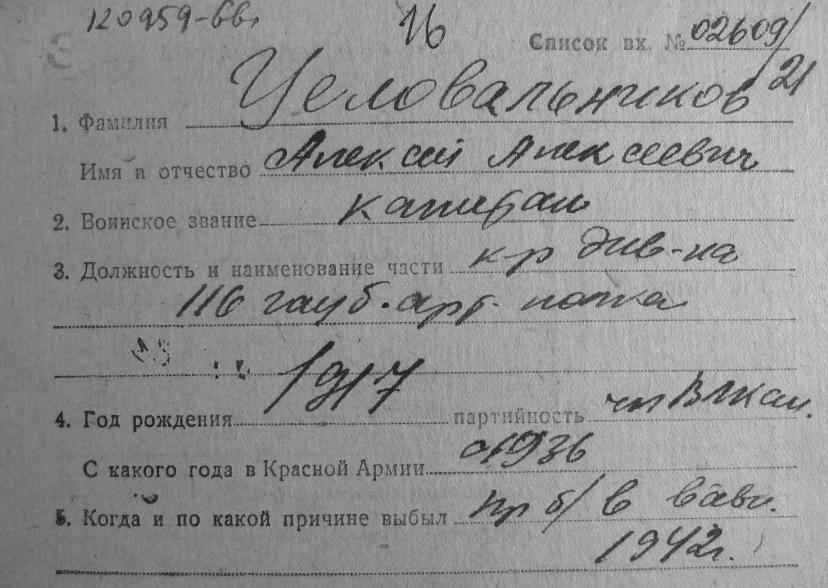 120959-вв,
16
Список вх. № 02609/21
1. Фамилия Целовальников
Имя и отчество Алексей Алексеевич
2. Воинское звание капитан
3. Должность и наименование части к-р див-на
116 гауб. арт. полка
4. Год рождения 1917 партийность чл ВЛКСМ.
С какого года в Красной Армии с 1936
5. Когда и по какой причине выбыл пр б/в
1942г.